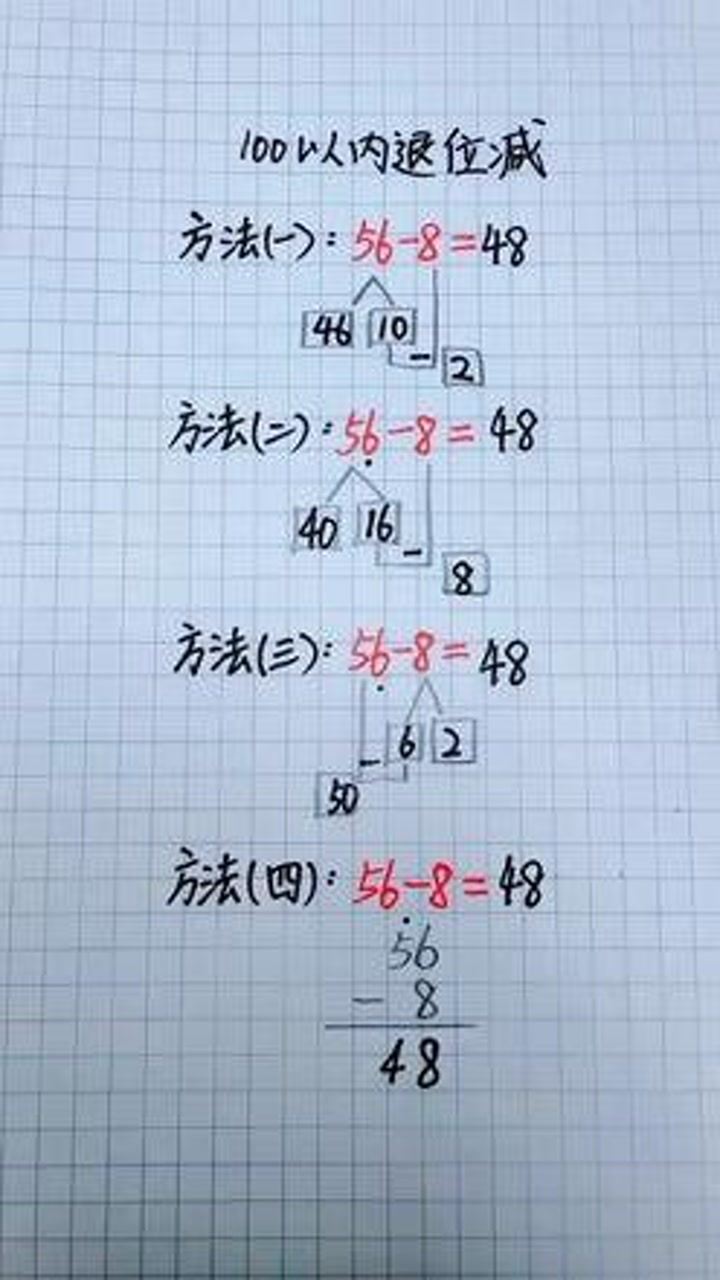 100以内退位减
方法(一): 56-8=48
46 10
- 2
方法(二): 56-8=48
40 16
- 8
方法(三): 56-8=48
- 6 2
50
方法(四): 56-8=48
56
- 8
48